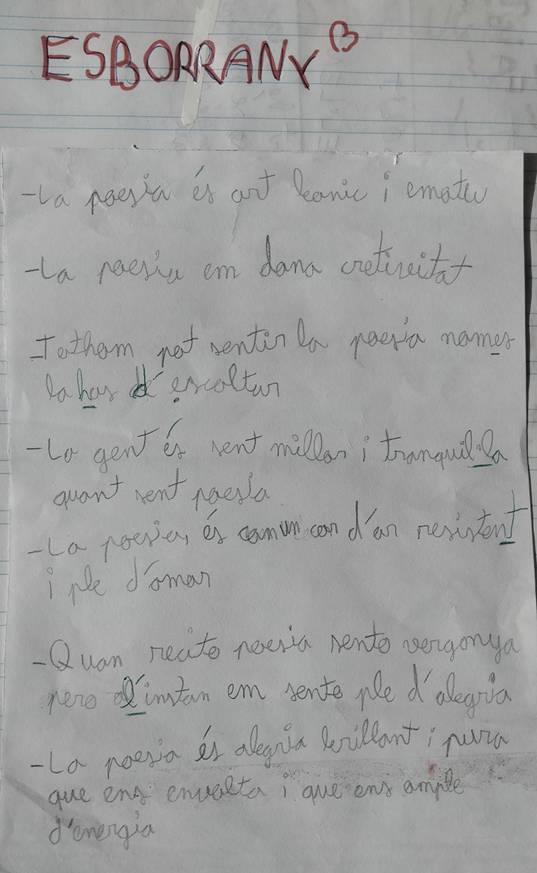 ESBORRANY B
-La poesia és art icònic i emotiu
-La poesia em dona cretivitat
Tothom pot sentir la poesia nomes
la has d'escoltar
-La gent és sent millor i tranquil·la
quant sent poesia
-La poesia, és com un cor d'or resistent
i ple d'omar
-Quan recito poesia sento vergonya
pero d'instan em sento ple d'alegria
-La poesia és alegria brillant i pura
que ens envolta i que ens omple
d'energia